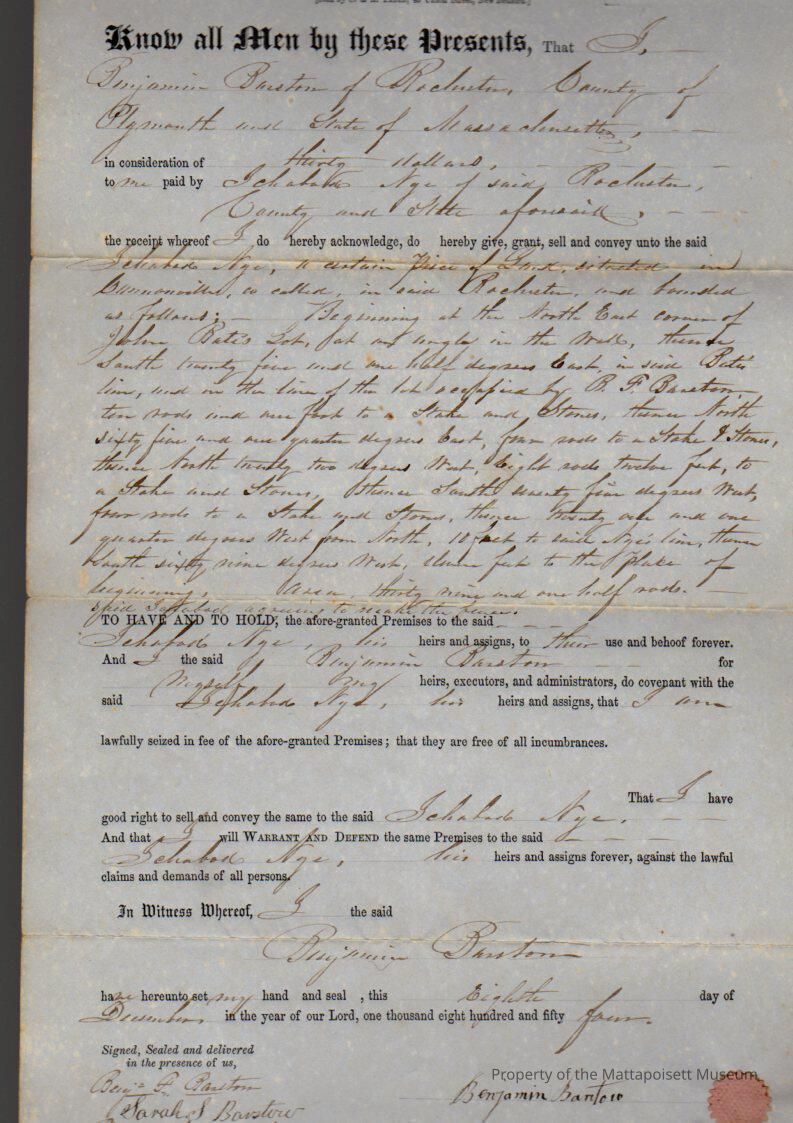 Know all Men by these Presents, That I,
Benjamin Barstow of Rochester, County of
Plymouth and State of Massachusetts,
in consideration of Thirty dollars,
to me paid by Ichabod Nye of said Rochester,
County and State aforesaid,
the receipt whereof I do hereby acknowledge, do hereby give, grant, sell and convey unto the said
Ichabod Nye, a certain Piece of Land, situated in
Cannonville, so called, in said Rochester, and bounded
as follows; Beginning at the North East corner of
John Bates Lot, at an angle in the wall, thence
South twenty five and one half degrees East, in said Bates
line, and on the line of the lot occupied by B. F. Barstow,
ten rods and one foot to a Stake and Stones, thence North
sixty five and one quarter degrees East, four rods to a Stake & Stones,
thence North twenty two degrees West, Eight rods twelve feet, to
a Stake and Stones, thence South seventy five degrees West,
four rods to a Stake and Stones, thence twenty one and one
quarter degrees West from North, 18 feet to said Nye's line, thence
South sixty nine degrees West, eleven feet to the place of
beginning. Area, thirty nine and one half rods.
said Ichabod agreeing to make the fence.
TO HAVE AND TO HOLD, the afore-granted Premises to the said
Ichabod Nye, his heirs and assigns, to their use and behoof forever.
And I the said Benjamin Barstow for
myself my heirs, executors, and administrators, do covenant with the
said Ichabod Nye, his heirs and assigns, that I am
lawfully seized in fee of the afore-granted Premises; that they are free of all incumbrances.
That I have
good right to sell and convey the same to the said Ichabod Nye,
And that I will WARRANT AND DEFEND the same Premises to the said
Ichabod Nye, his heirs and assigns forever, against the lawful
claims and demands of all persons.
In Witness Whereof, I the said
Benjamin Barstow
have hereunto set my hand and seal , this Eighth day of
December, in the year of our Lord, one thousand eight hundred and fifty four.
Signed, Sealed and delivered
in the presence of us,
Property of the Mattapoisett Museum
Benj. F. Barstow
Benjamin Barstow
Sarah S Barstow